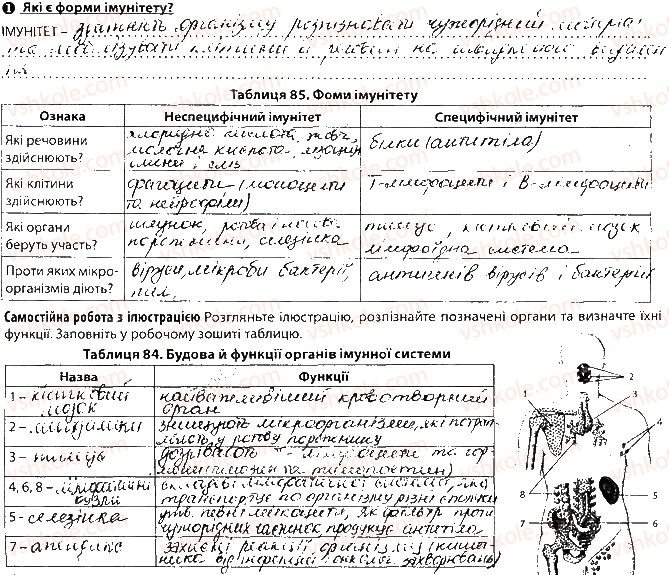 1 Які є форми імунітету?
ІМУНІТЕТ – здатність організму розпізнавати чужорідний матеріал
та мобілізувати клітини й речовини на
Таблиця 85. Фоми імунітету
Ознака Неспецифічний імунітет Специфічний імунітет
Які речовини здійснюють?
хлоридна кислота, жовч,
молочна кислота, лізоцим
слини і сліз
білки (антитіла)
Які клітини здійснюють?
фагоцити (моноцити
та нейтрофіли)
Т-лімфоцити і В-лімфоцити
Які органи беруть участь?
шлунок, ротова і носова
порожнини, селезінка
тимус, кістковий мозок
лімфоїдна система
Проти яких мікро-
організмів діють?
віруси, мікроби бактерії,
пил.
антигенів вірусів і бактерій
Самостійна робота з ілюстрацією Розгляньте ілюстрацію, розпізнайте позначені органи та визначте їхні
функції. Заповніть у робочому зошиті таблицю.
Таблиця 84. Будова й функції органів імунної системи
Назва Функції
1 – кістковий
мозок
найважливіший кровотворний
орган
2 – мигдалини
знищують мікроорганізми, які потрап-
ляють у ротову порожнину
3 – тимус
дозрівають лімфоцити та гор-
мони (тимозин та тимопоетин)
4, 6, 8 – лімфатичні
вузли
складові лімфатичної системи, яка
транспортує по організму різні сполуки
5 – селезінка
утв. певні лейкоцити, як фільтр проти
чужорідних частинок продукує антитіла
7 – апендикс
захисні реакції організму (кишеч-
ника від інфекцій онколог. захворювань)
1
2
3
4
5
6
7
8
vshkole.com